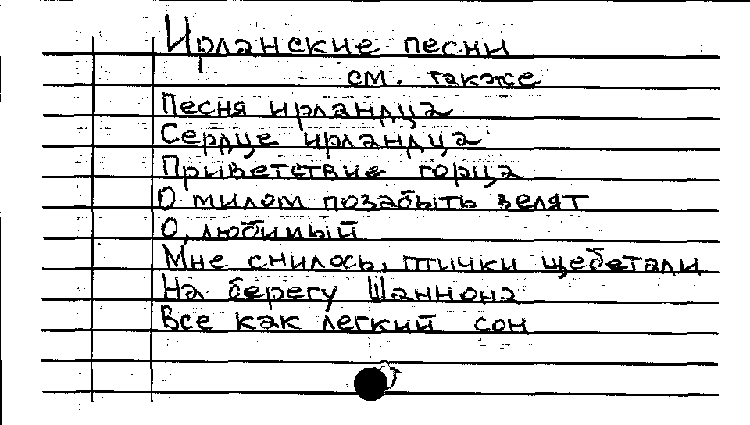 Ирланские песни
см. также
Песня ирландца
Сердце ирландца
Приветствие горца
О милом позабыть велят
О, любимый
Мне снилось, птички щебетали
На берегу Шаннона
Все как легкий сон